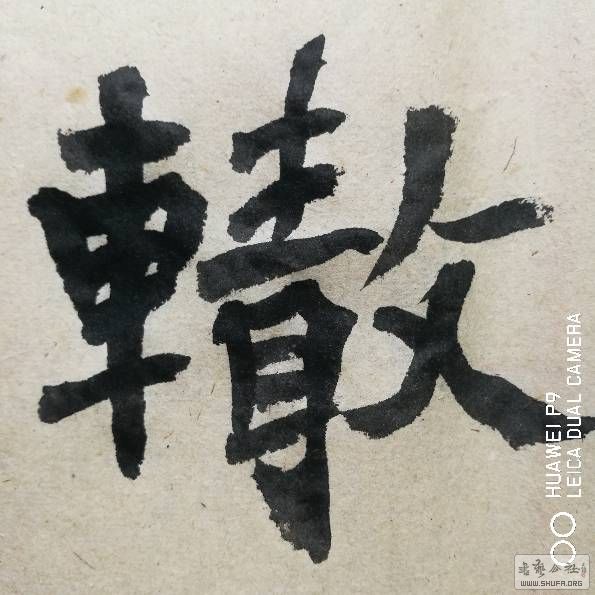 轍
HUAWEI P9
LEICA DUAL CAMERA
书艺公社
WWW.SHUFA.ORG